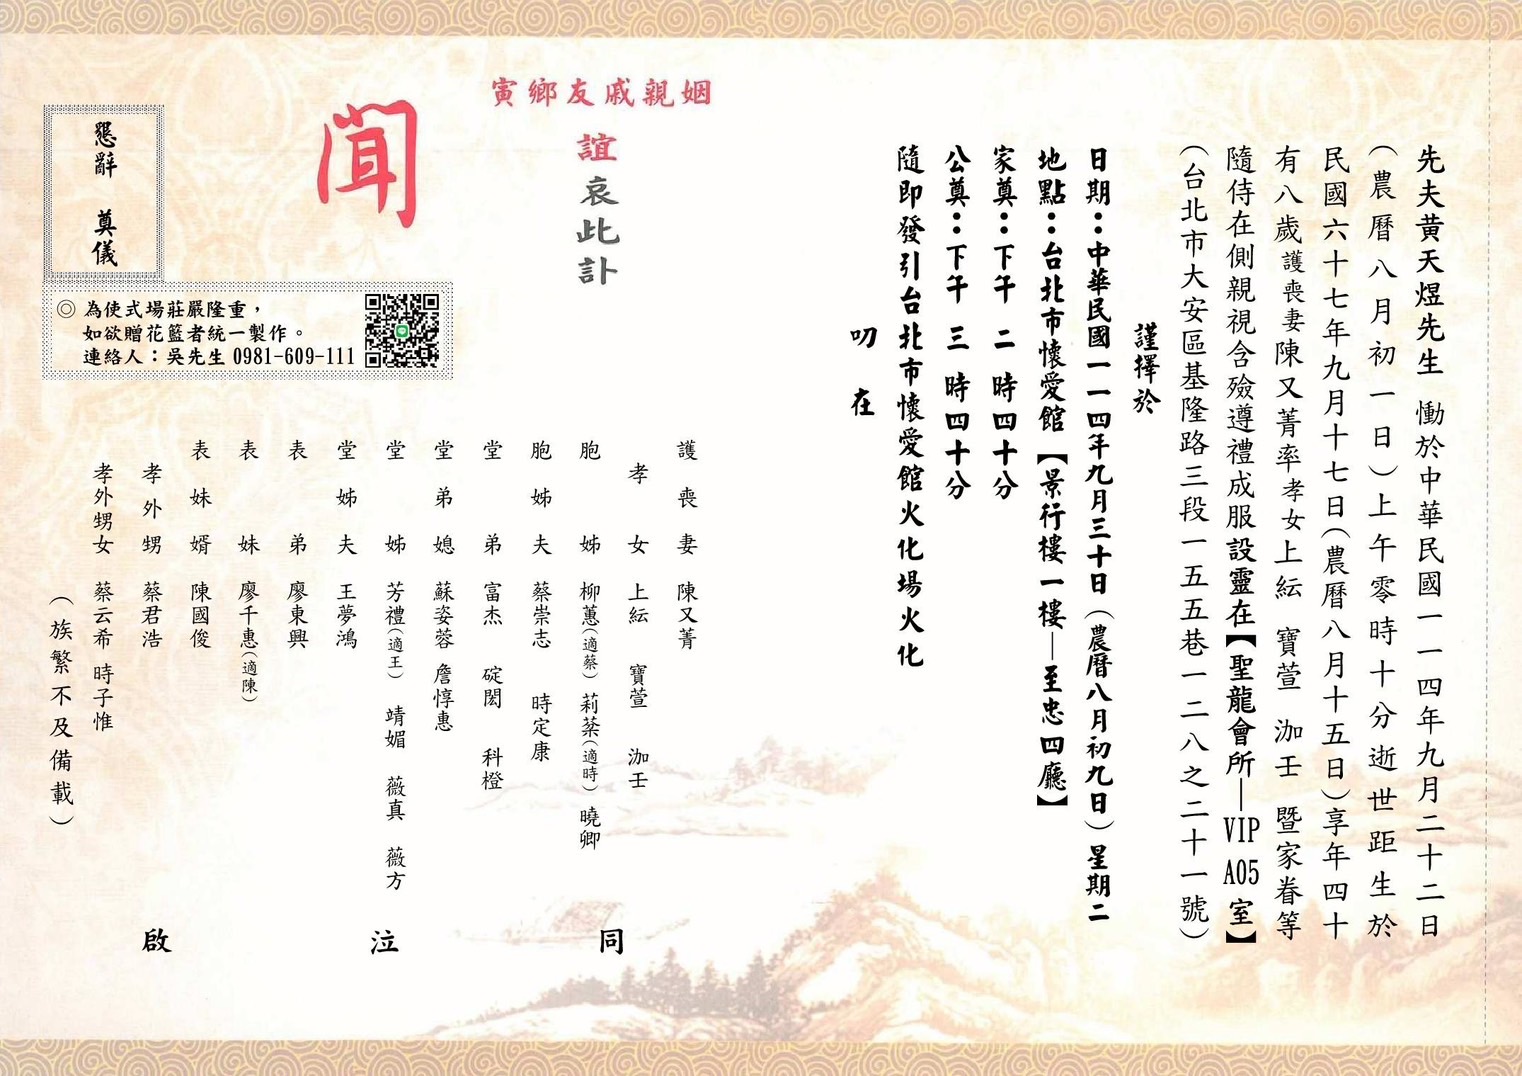 先夫黃天煜先生 慟於中華民國一一四年九月二十二日
（農曆八月初一日）上午零時十分逝世距生於
民國六十七年九月十七日（農曆八月十五日）享年四十
有八歲護喪妻陳又菁率孝女上紜 寶萱 泇壬 暨家眷等
隨侍在側親視含殮遵禮成服設靈在【聖龍會所—VIP A05 室】
（台北市大安區基隆路三段一五五巷一二八之二十一號）
謹擇於
日期：中華民國一一四年九月三十日（農曆八月初九日）星期二
地點：台北市懷愛館【景行樓一樓—至忠四廳】
家奠：下午 二 時四十分
公奠：下午 三 時四十分
隨即發引台北市懷愛館火化場火化
叨 在
姻親戚友鄉寅
誼哀此訃
聞
懇辭 奠儀
◎ 為使式場莊嚴隆重，
如欲贈花籃者統一製作。
連絡人：吳先生 0981-609-111
護喪妻 陳又菁
孝女 上紜 寶萱 泇壬
胞姊 柳蕙（適蔡） 莉棻（適時） 曉卿
胞姊夫 蔡崇志 時定康
堂弟 富杰 碇閎 科橙
堂弟媳 蘇姿蓉 詹惇惠
堂姊 芳禮（適王） 靖媚 薇真 薇方
堂姊夫 王夢鴻
表弟 廖東興
表妹 廖千惠（適陳）
表妹婿 陳國俊
孝外甥 蔡君浩
孝外甥女 蔡云希 時子惟
（族繁不及備載）
同 泣 啟